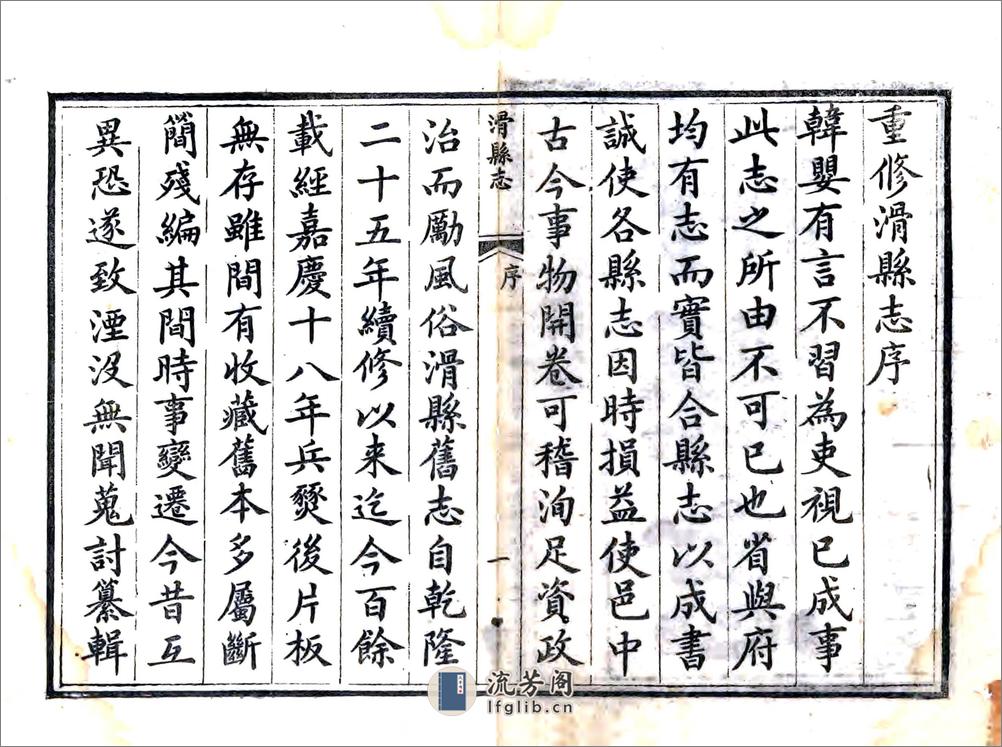 重修滑縣志序
韓嬰有言不習為吏視已成事
此志之所由不可已也省與府
均有志而實皆合縣志以成書
誠使各縣志因時損益使邑中
古今事物開卷可稽洵足資政
滑縣志
序
一
治而勵風俗滑縣舊志自乾隆
二十五年續修以来迄今百餘
載經嘉慶十八年兵燹後片板
無存雖間有收藏舊本多屬斷
簡殘編其間時事變遷今昔互
異恐遂致湮没無聞蒐討纂輯
流芳阁
lfglib.cn